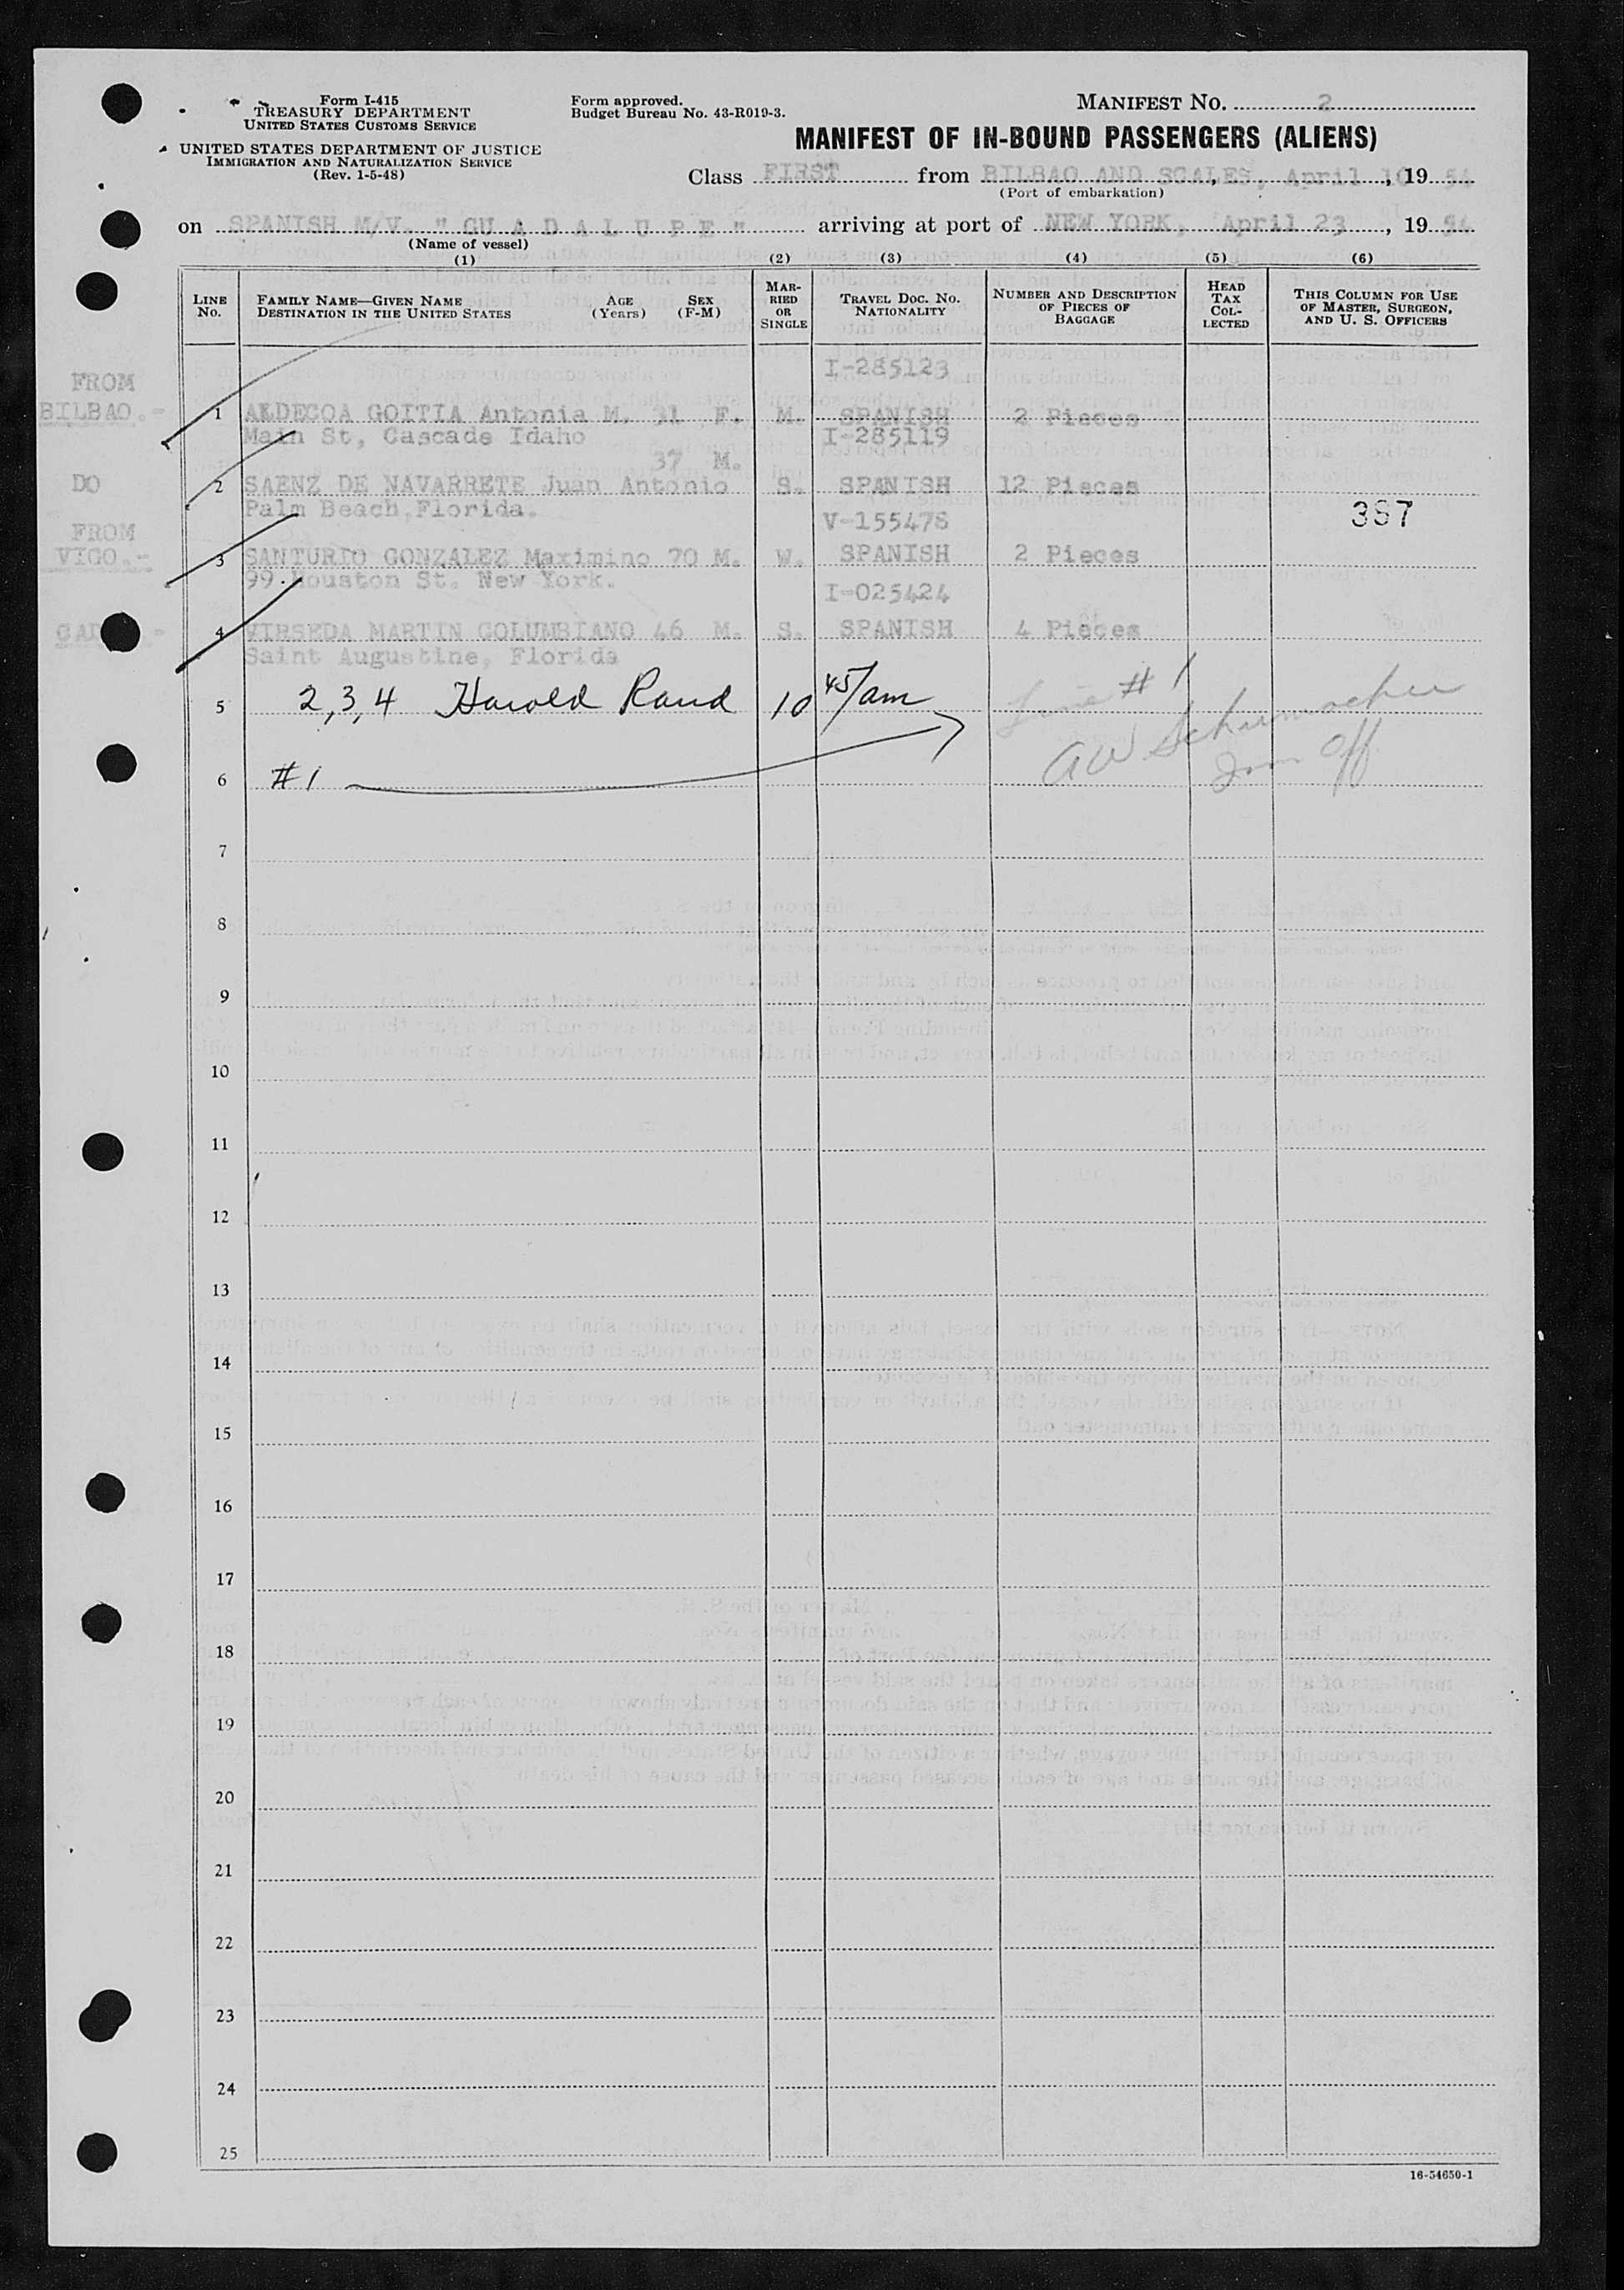 Form I-415
TREASURY DEPARTMENT
UNITED STATES CUSTOMS SERVICE
UNITED STATES DEPARTMENT OF JUSTICE
IMMIGRATION AND NATURALIZATION SERVICE
(Rev. 1-5-48)
Form approved.
Budget Bureau No. 43-R019-3.
MANIFEST NO. 2
MANIFEST OF IN-BOUND PASSENGERS (ALIENS)
Class FIRST from BILBAO AND SCALES, April 10, 1954
(Port of embarkation)
on SPANISH M/V. " GU A D A L U P E " arriving at port of NEW YORK, April 23, 1954
(Name of vessel)
(1) (2) (3) (4) (5) (6)
LINE No. FAMILY NAME—GIVEN NAME DESTINATION IN THE UNITED STATES AGE (Years) SEX (F-M) MARRIED OR SINGLE TRAVEL DOC. NO. NATIONALITY NUMBER AND DESCRIPTION OF PIECES OF BAGGAGE HEAD TAX COLLECTED THIS COLUMN FOR USE OF MASTER, SURGEON, AND U. S. OFFICERS
I-285123
FROM
BILBAO.- 1 ALDECOA GOITIA Antonia M. 31 F. M. SPANISH 2 Pieces
Main St, Cascade Idaho I-285119
37 M.
DO 2 SAENZ DE NAVARRETE Juan Antonio S. SPANISH 12 Pieces
Palm Beach, Florida. V-155478 387
FROM
VIGO.- 3 SANTURIO GONZALEZ Maximino 70 M. W. SPANISH 2 Pieces
99.Houston St. New York. I-025424
4 VIRSEDA MARTIN COLUMBIANO 46 M. S. SPANISH 4 Pieces
Saint Augustine, Florida
5 2,3,4 Harold Rand 10 45/am Line # 1
AW Schumacher
6 #1 Imm Off
7
8
9
10
11
12
13
14
15
16
17
18
19
20
21
22
23
24
25
16-54650-1